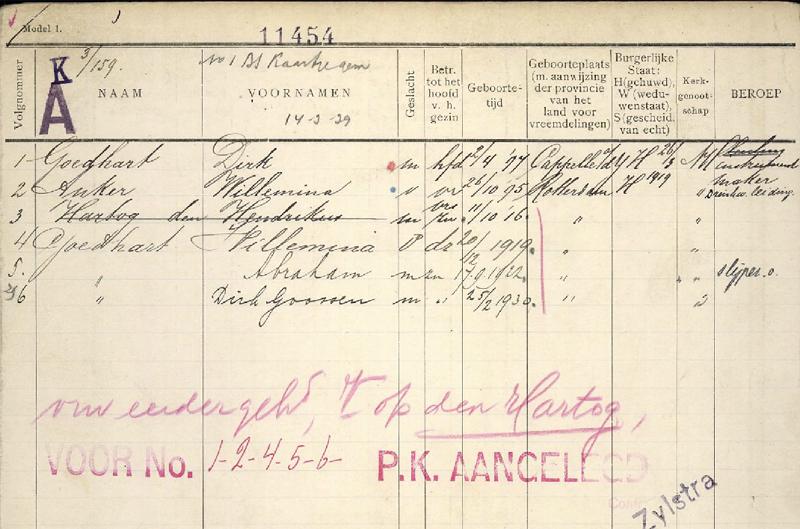 Model 1.
11454
K 3/159.
A
14-3-39
Volgnommer NAAM VOORNAMEN Geslacht Betr. tot het hoofd v. h. gezin Geboorte-tijd Geboorteplaats (m. aanwijzing der provincie van het land voor vreemdelingen) Burgerlijke Staat: H(gehuwd), W (weduwenstaat), S (gescheid. van echt) Kerk-genoot-schap BEROEP
1 Goedhart Dirk m hfd 12/4 '97 Cappelle a/d Y H 26/3 NH
2 Anker Willemina v vr 26/10 95 Rotterdam H 1919 "
3 Hartog den Hendrikus m 11/10 16. " "
4 Goedhart Willemina v dr 20/12 1919 " "
5. " Abraham m zn 17.9.1922. " " slijper.
6 " Dirk Goossen m " 25/2 1930. " "
vrw eerder geh^d, † op den Hartog,
VOOR No. 1-2-4-5-6- P.K. AANGELEGD
Zylstra